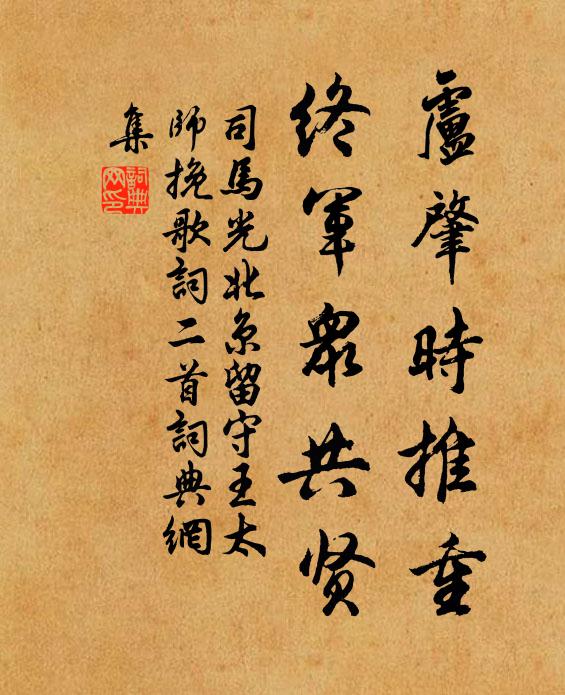 盧肇時推重
終軍衆共贤
司馬光北京留守王太
師挽歌詞二首詞典網
集
詞典
网印